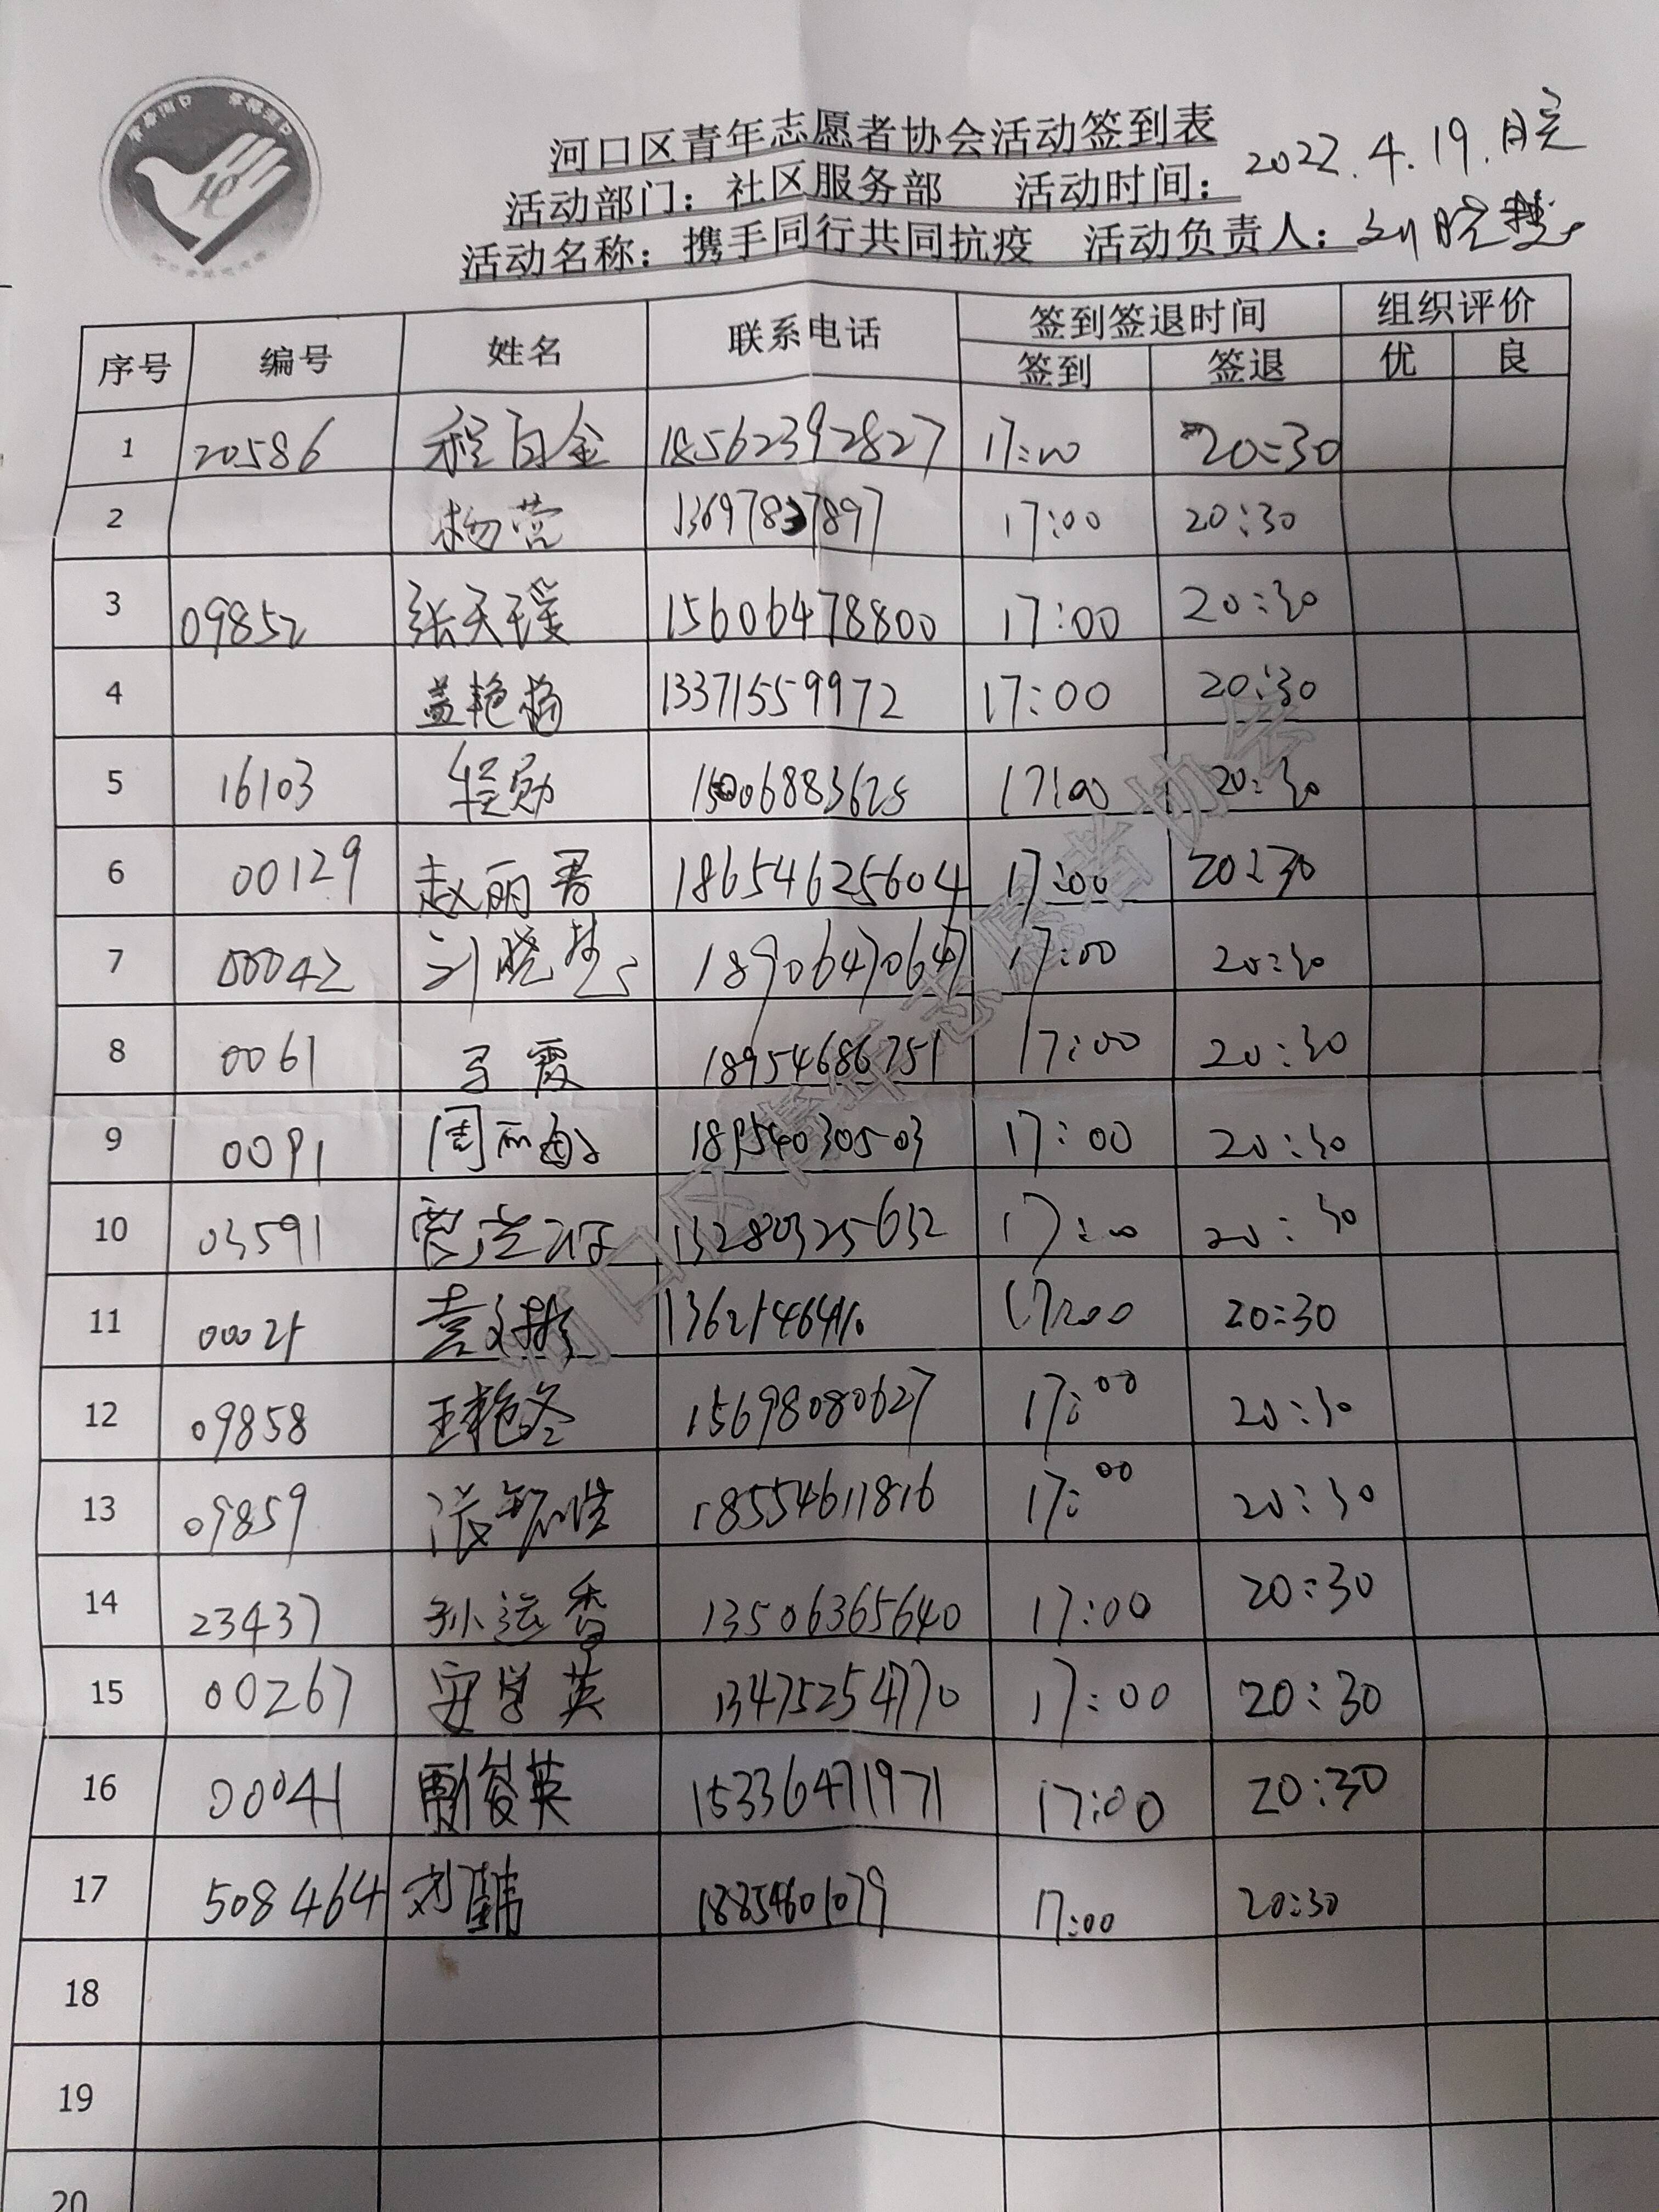 河口区青年志愿者协会活动签到表
活动部门：社区服务部 活动时间：2022.4.19.晚
活动名称：携手同行共同抗疫 活动负责人：刘晓楚
序号 编号 姓名 联系电话 签到签退时间 组织评价
签到 签退 优 良
1 20586 程百金 18562392827 17:00 20:30
2 杨营 13697837897 17:00 20:30
3 09852 张天瑗 15606478800 17:00 20:30
4 盖艳梅 13371559972 17:00 20:30
5 16103 15006883625 17:00 20:30
6 00129 赵丽君 18654625604 17:00 20:30
7 00042 刘晓楚 18906470647 17:00 20:30
8 0061 弓霞 18954686751 17:00 20:30
9 0091 周丽 18954030503 17:00 20:30
10 03591 13280325632 17:00 20:30
11 袁 17:00 20:30
12 09858 王艳冬 15698080627 17:00 20:30
13 09859 张 18554611816 17:00 20:30
14 23437 孙运香 13506365640 17:00 20:30
15 00267 安学英 13475254770 17:00 20:30
16 00041 俊英 15336471971 17:00 20:30
17 508464 刘 18854601079 17:00 20:30
18
19
20
河口区青年志愿者协会